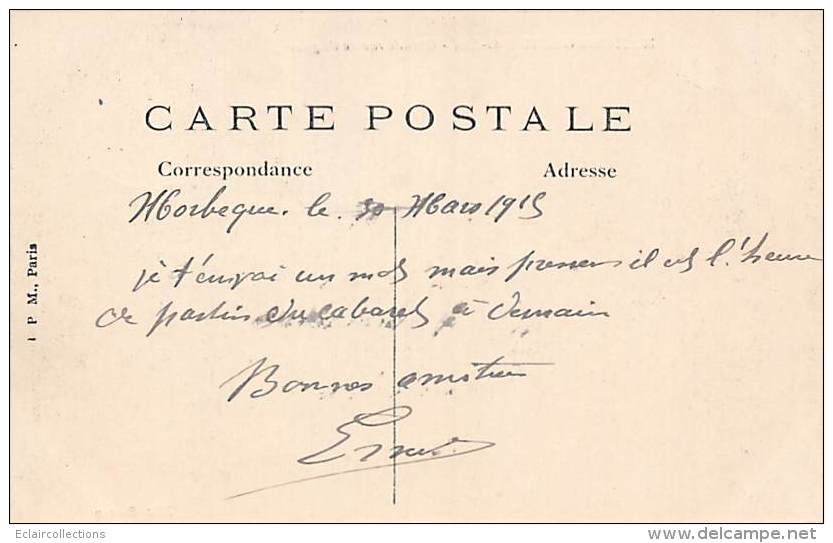 CARTE POSTALE
Correspondance Adresse
Morbeque. le 30 Mars 1915
je t'envoi un mot mais il est l'heure
de partir du cabaret à demain
Bonnes amities
1 P M., Paris
Eclaircollections
delcampe.net